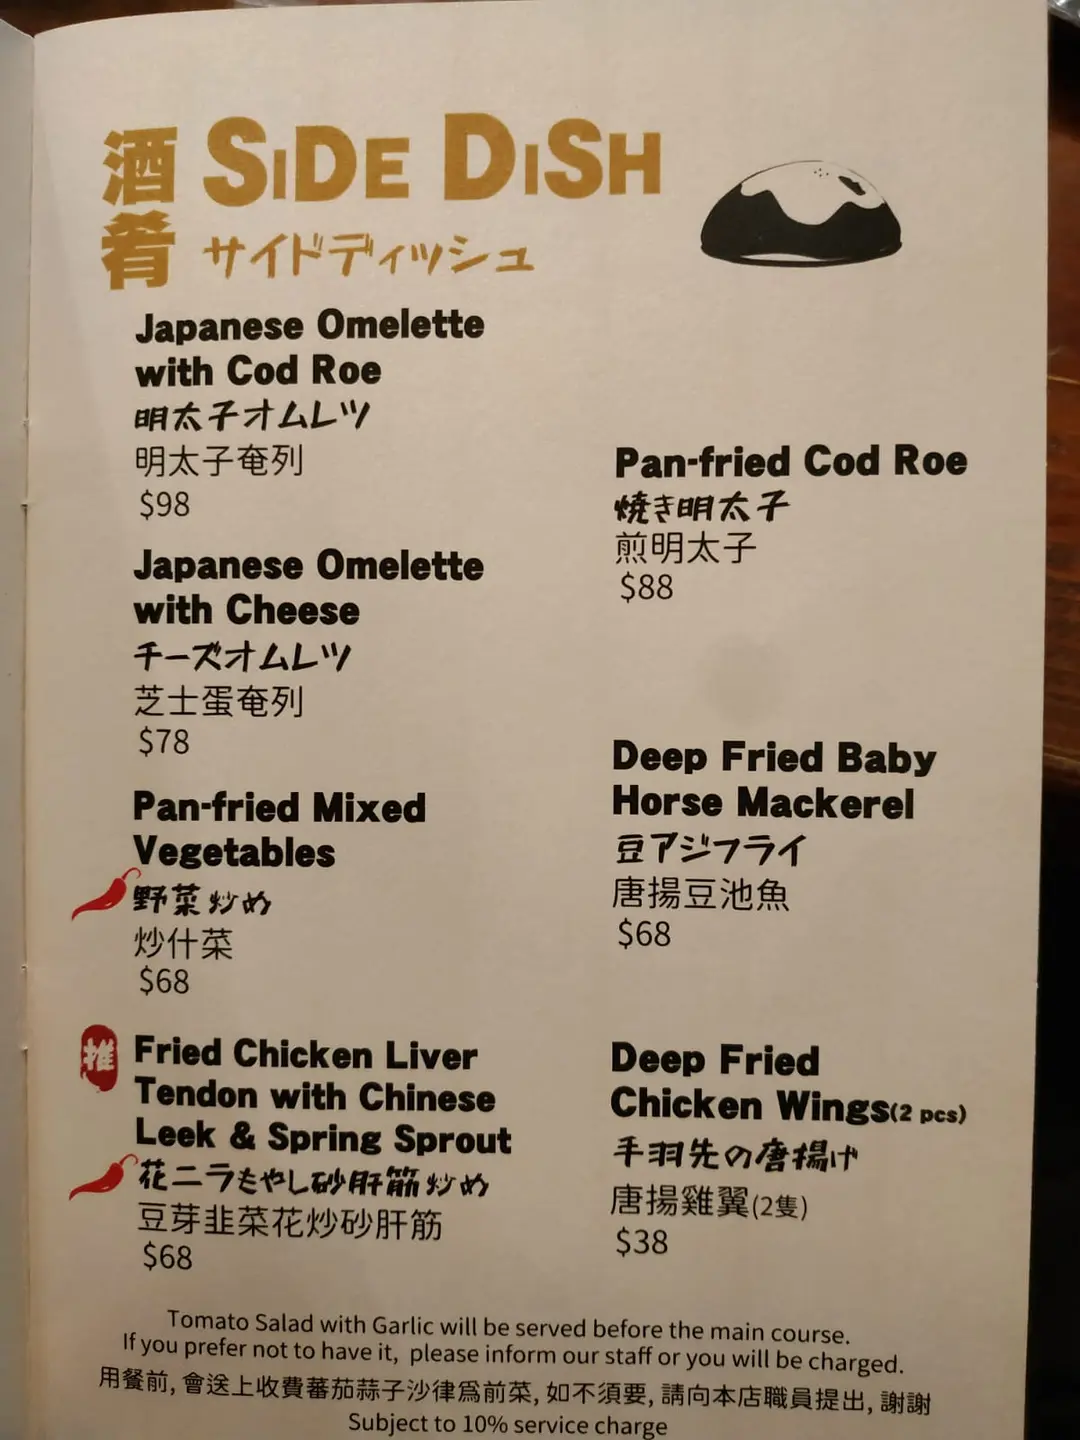 酒肴 SIDE DISH
サイドディッシュ
Japanese Omelette
with Cod Roe
明太子オムレツ
明太子奄列
$98
Japanese Omelette
with Cheese
チーズオムレツ
芝士蛋奄列
$78
Pan-fried Mixed
Vegetables
野菜炒め
炒什菜
$68
推
Fried Chicken Liver
Tendon with Chinese
Leek & Spring Sprout
花ニラもやし砂肝筋炒め
豆芽韭菜花炒砂肝筋
$68
Pan-fried Cod Roe
焼き明太子
煎明太子
$88
Deep Fried Baby
Horse Mackerel
豆アジフライ
唐揚豆池魚
$68
Deep Fried
Chicken Wings(2 pcs)
手羽先の唐揚げ
唐揚雞翼(2隻)
$38
Tomato Salad with Garlic will be served before the main course.
If you prefer not to have it, please inform our staff or you will be charged.
用餐前, 會送上收費蕃茄蒜子沙律爲前菜, 如不須要, 請向本店職員提出, 謝謝
Subject to 10% service charge